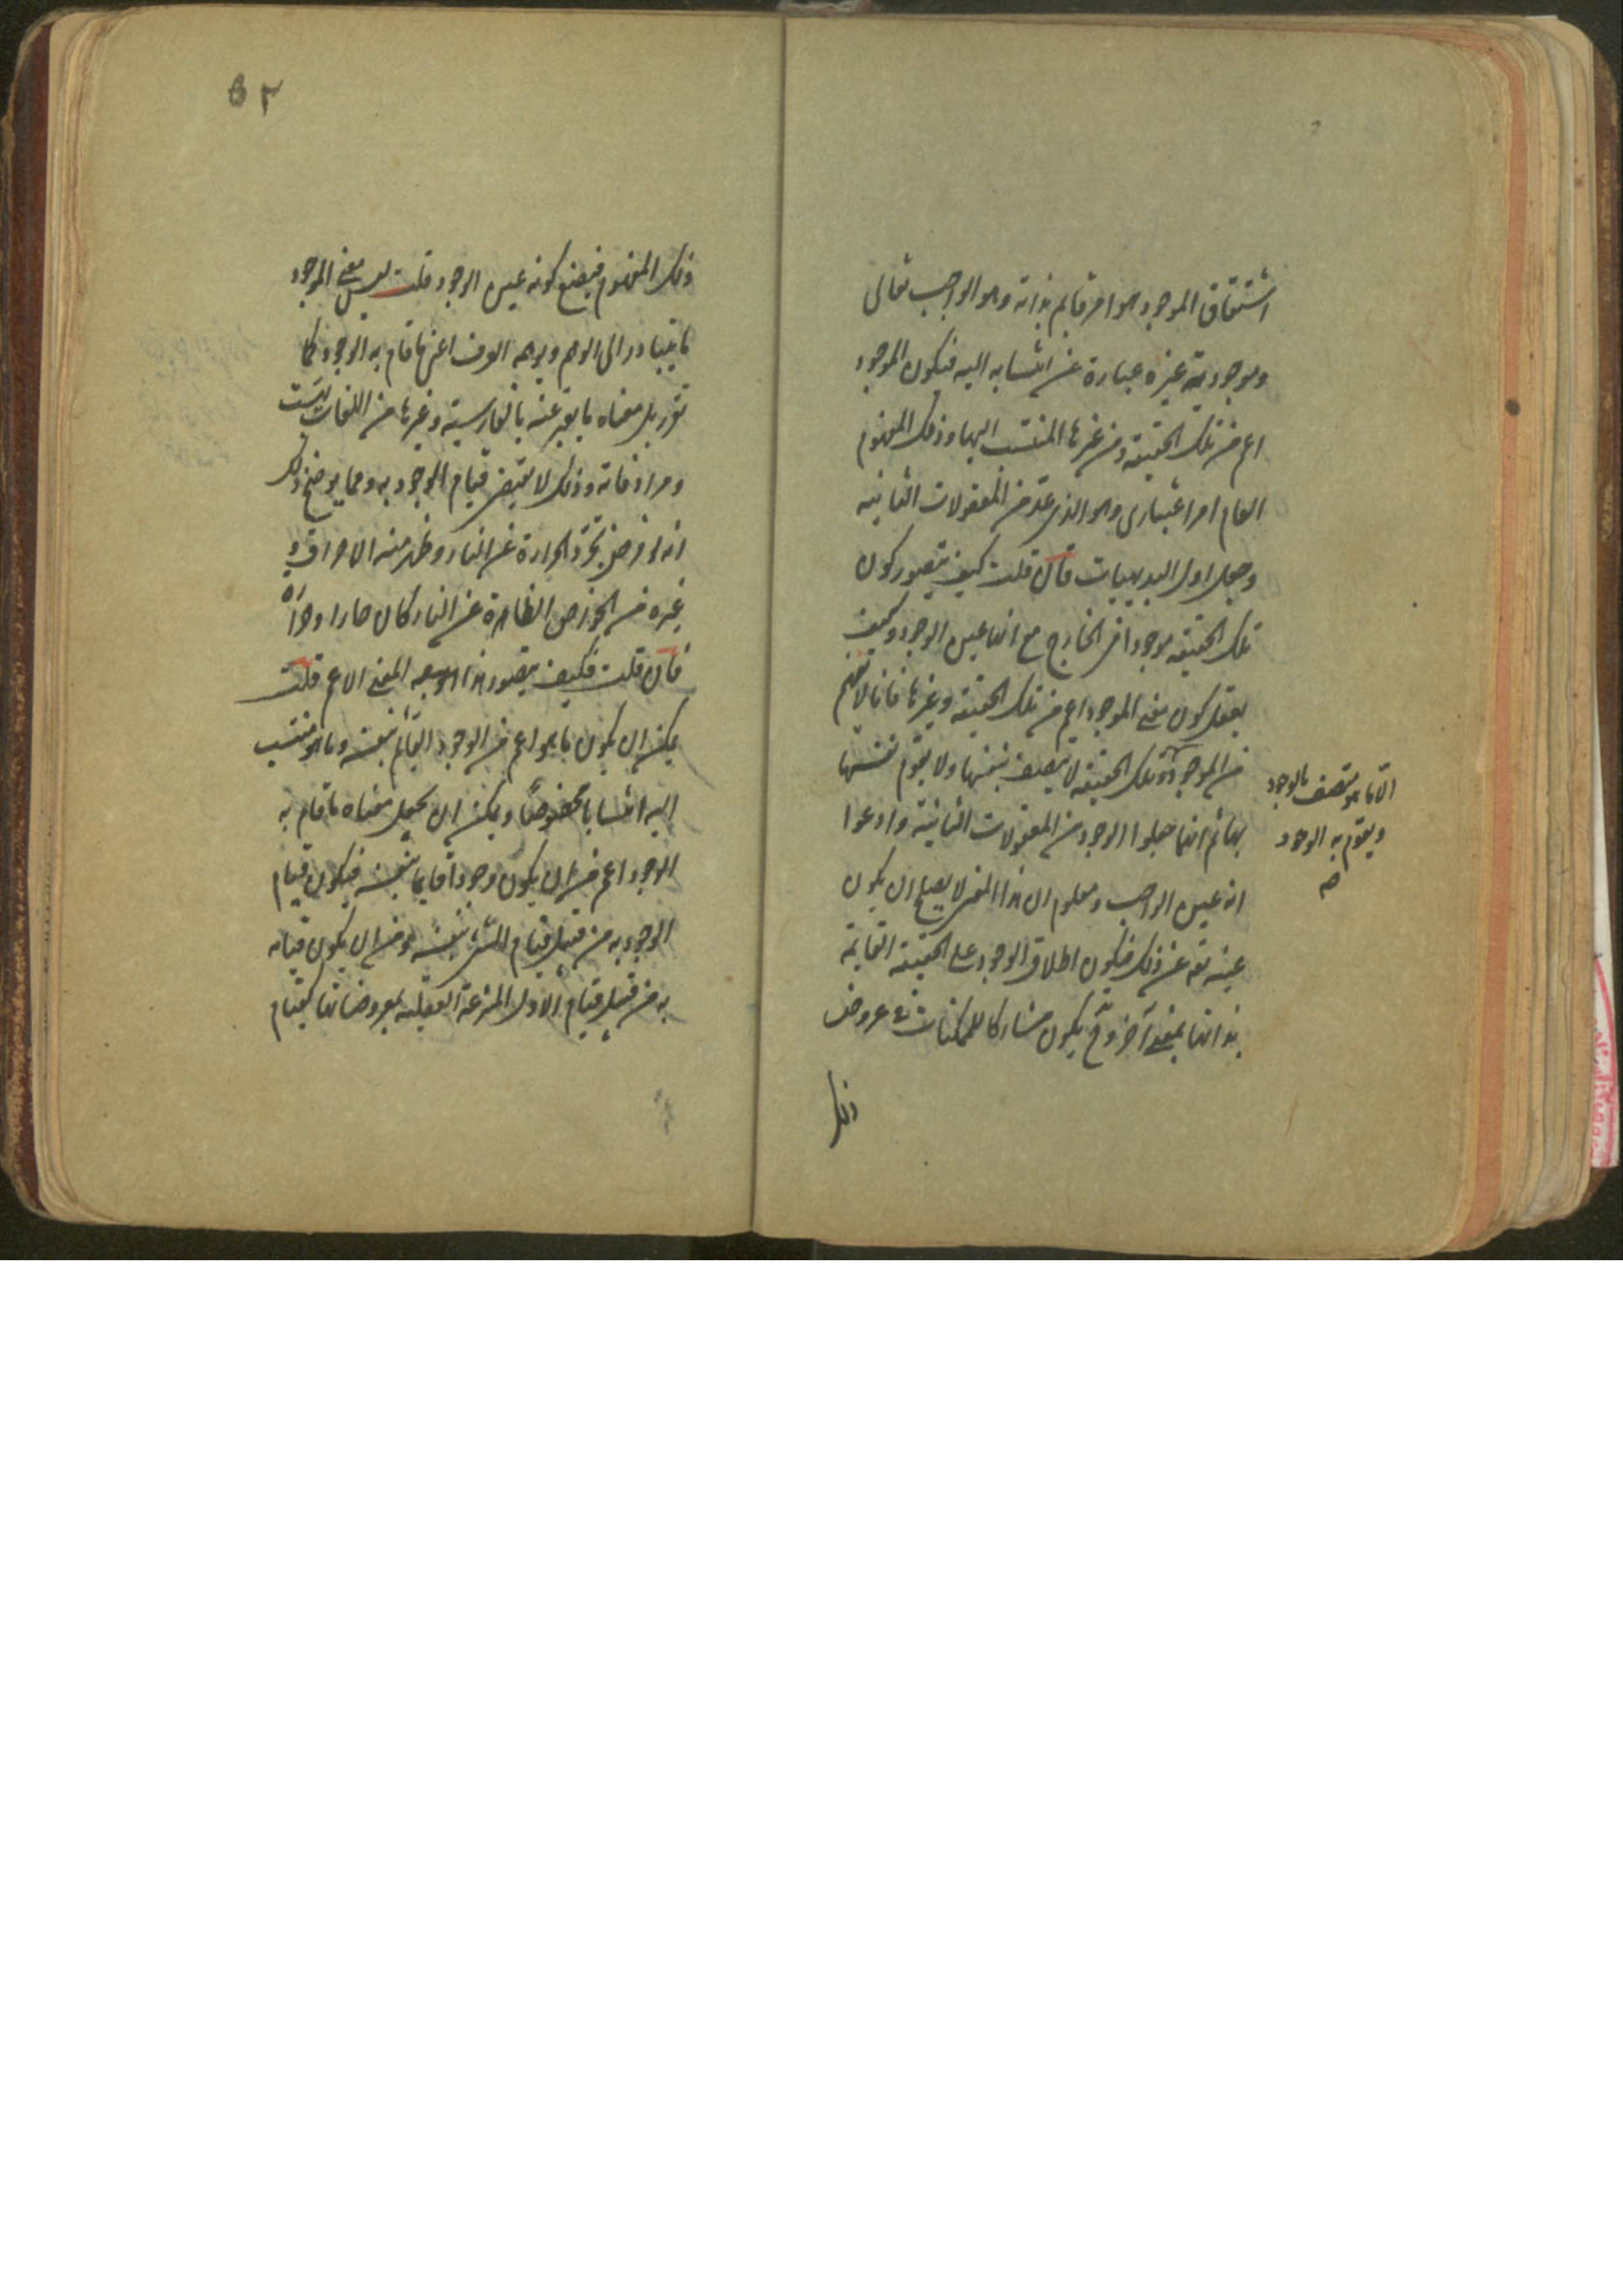 اشتقاق الموجود هو امر قايم بذاته وهو الواجب تعالى
وموجودية غيره عبارة عن انتسابه اليه فيكون الموجود
اعم من تلك الحقيقة ومن غيرها المنتسب اليها وذلك المفهوم
العام امر اعتبارى وهو الذى عد من المعقولات الثانيه
وجعل اول البديهيات فان قلت كيف يتصور كون
تلك الحقيقه موجودا فى الخارج مع انها عين الوجود وكيف
يعقل كون معنى الموجود اعم من تلك الحقيقه وغيرها فانا لا نفهم
من الموجود وتلك الحقيقه لا يتصف بنفسها ولا يقوم نفسها
الا ما هو متصف بالوجود
ويقوم به الوجود
صح
بها ثم انهما جعلوا الوجود من المعقولات الثانية وادعوا
انه عين الواجب ومعلوم ان هذا المعنى لا يصلح ان يكون
عينه تعـ عن ذلك فيكون اطلاق الوجود على الحقيقة القايمة
بذاتها بمعنى آخر وح يكون مشاركا للممكنات فى عروض
ذلك
٥٢
ذلك المفهوم فيمتنع كونه عين الوجود قلت ليس معنى الموجود
ما يتبادر الى الوهم ويوهمه العرف اعنى ما قام به الوجود كما
تقرر بل معناه ما يعبر عنه بالفارسية وغيرها من اللغات بهست
ومرادفاته وذلك لا يقتضى قيام الوجود به ومما يوضح ذلك
انه لو فرض تجرد الحرارة عن النار وظهر منه الاحراق و
غيره من الخواص الظاهرة عن النار كان حارا وحرارة
فان قلت فكيف يتصور هذا المعنى الاعم قلت
يمكن ان يكون ما هو اعم من الوجود القائم بنفسه وما هو منتسب
اليه انتسابا مخصوصا ويمكن ان يجعل معناه ما قام به
الوجود اعم من ان يكون وجودا قايما بنفسه فيكون قيام
الوجود به من قبيل قيام الشئ بنفسه ومن ان يكون قيامه
به من قبيل قيام الامور المنتزعة العقلية بمعروضاتها كقيام